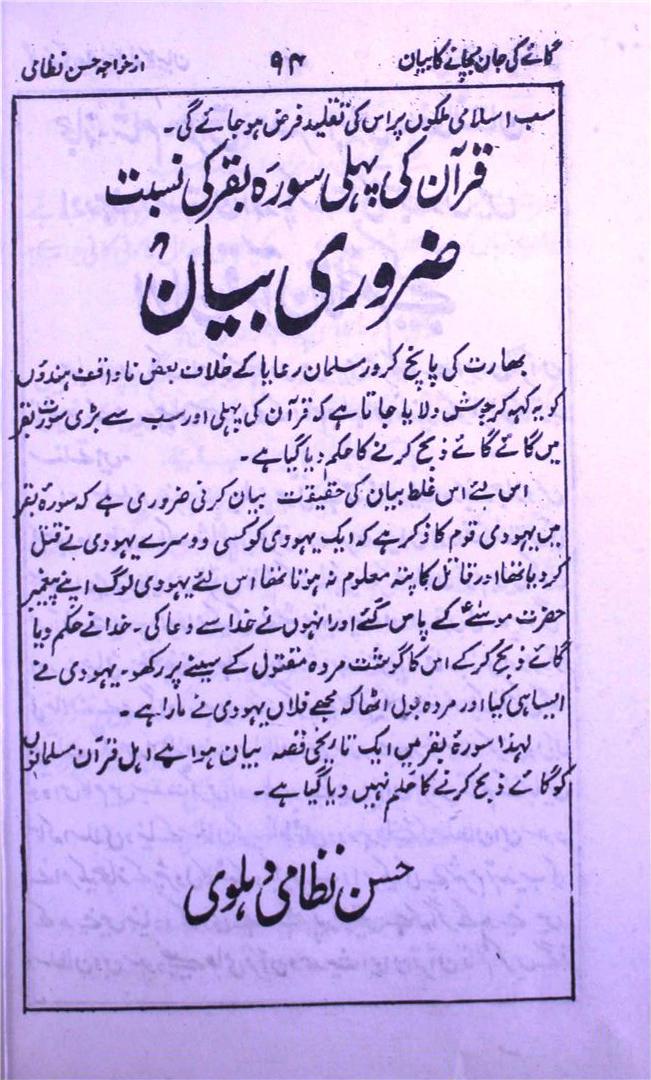 گائے کی جان بچانے کا بیان ۹۴ از خواجہ حسن نظامی
سب اسلامی ملکوں پر اس کی تقلید فرض ہو جائے گی۔
قرآن کی پہلی سورہ بقر کی نسبت
ضروری بیان
بھارت کی پانچ کرور مسلمان رعایا کے خلاف بعض ناواقف ہندوں
کو یہ کہہ کر جوش دلایا جاتا ہے کہ قرآن کی پہلی اور سب سے بڑی سورت بقر
میں گائے گائے ذبح کرنے کا حکم دیا گیا ہے۔
اس لئے اس غلط بیان کی حقیقت بیان کرنی ضروری ہے کہ سورہ بقر
میں یہودی قوم کا ذکر ہے کہ ایک یہودی کو کسی دوسرے یہودی نے قتل
کر دیا تھا اور قاتل کا پتہ معلوم نہ ہوتا تھا اس لئے یہودی لوگ اپنے پیغمبر
حضرت موسٰےؑ کے پاس گئے اور انہوں نے خدا سے دعا کی۔ خدا نے حکم دیا
گائے ذبح کر کے اس کا گوشت مردہ مقتول کے سینے پر رکھو۔ یہودی نے
ایسا ہی کیا اور مردہ بول اٹھا کہ مجھے فلاں یہودی نے مارا ہے۔
لہذا سورۂ بقر میں ایک تاریخی قصہ بیان ہوا ہے اہل قرآن مسلمانوں
کو گائے ذبح کرنے کا حکم نہیں دیا گیا ہے۔
حسن نظامی دہلوی